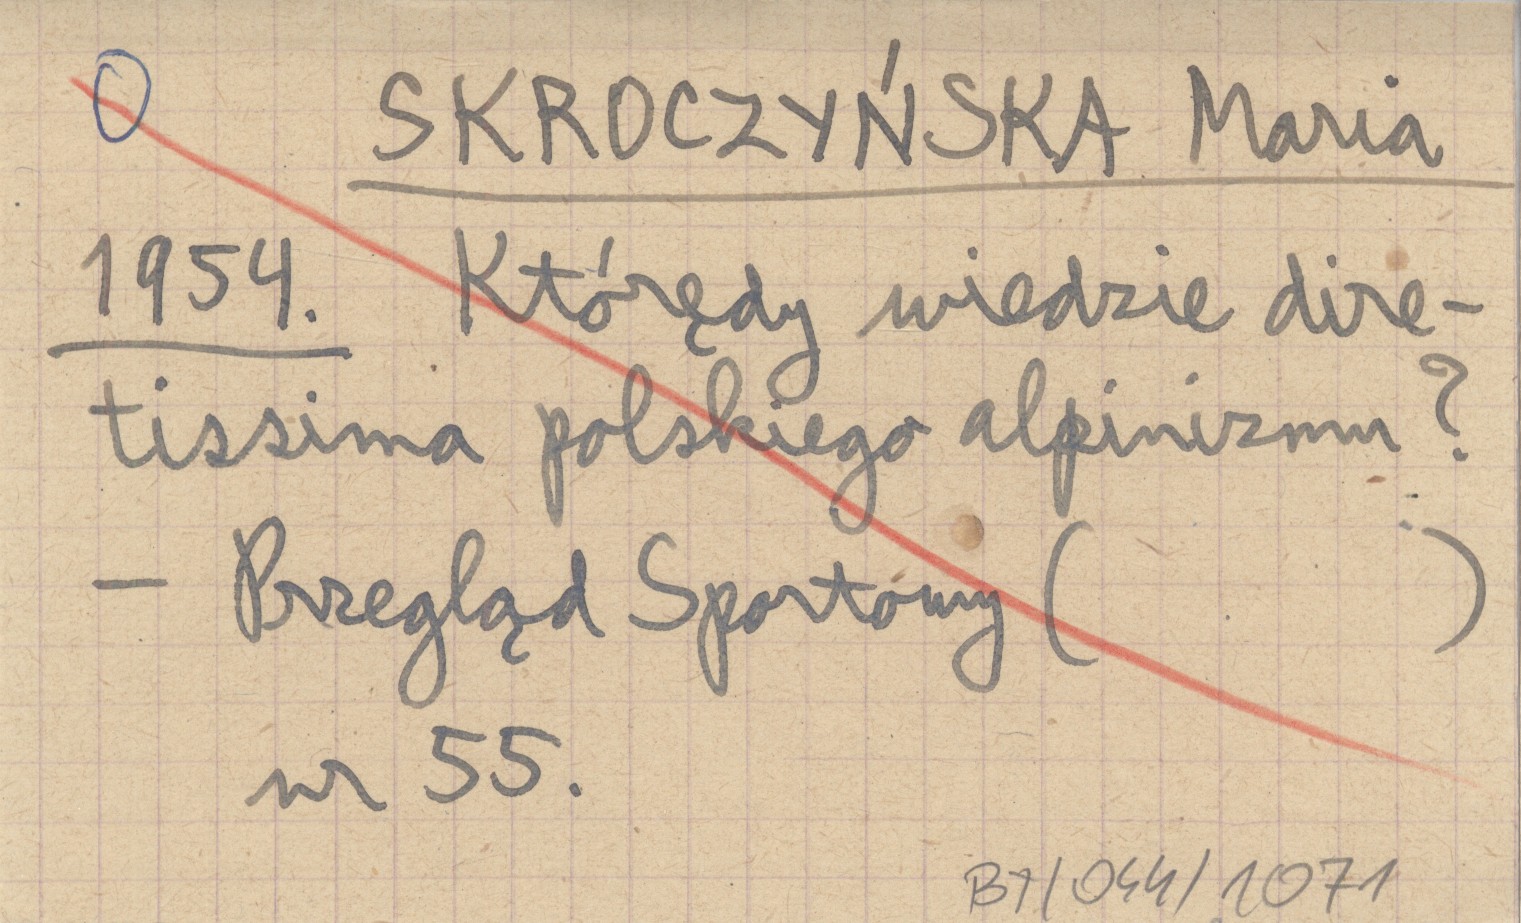 SKROCZYŃSKA Maria
1954. Którędy wiedzie dire-
tissima polskiego alpinizmu?
- Przegląd Sportowy ( )
nr 55.
BT/044/1071